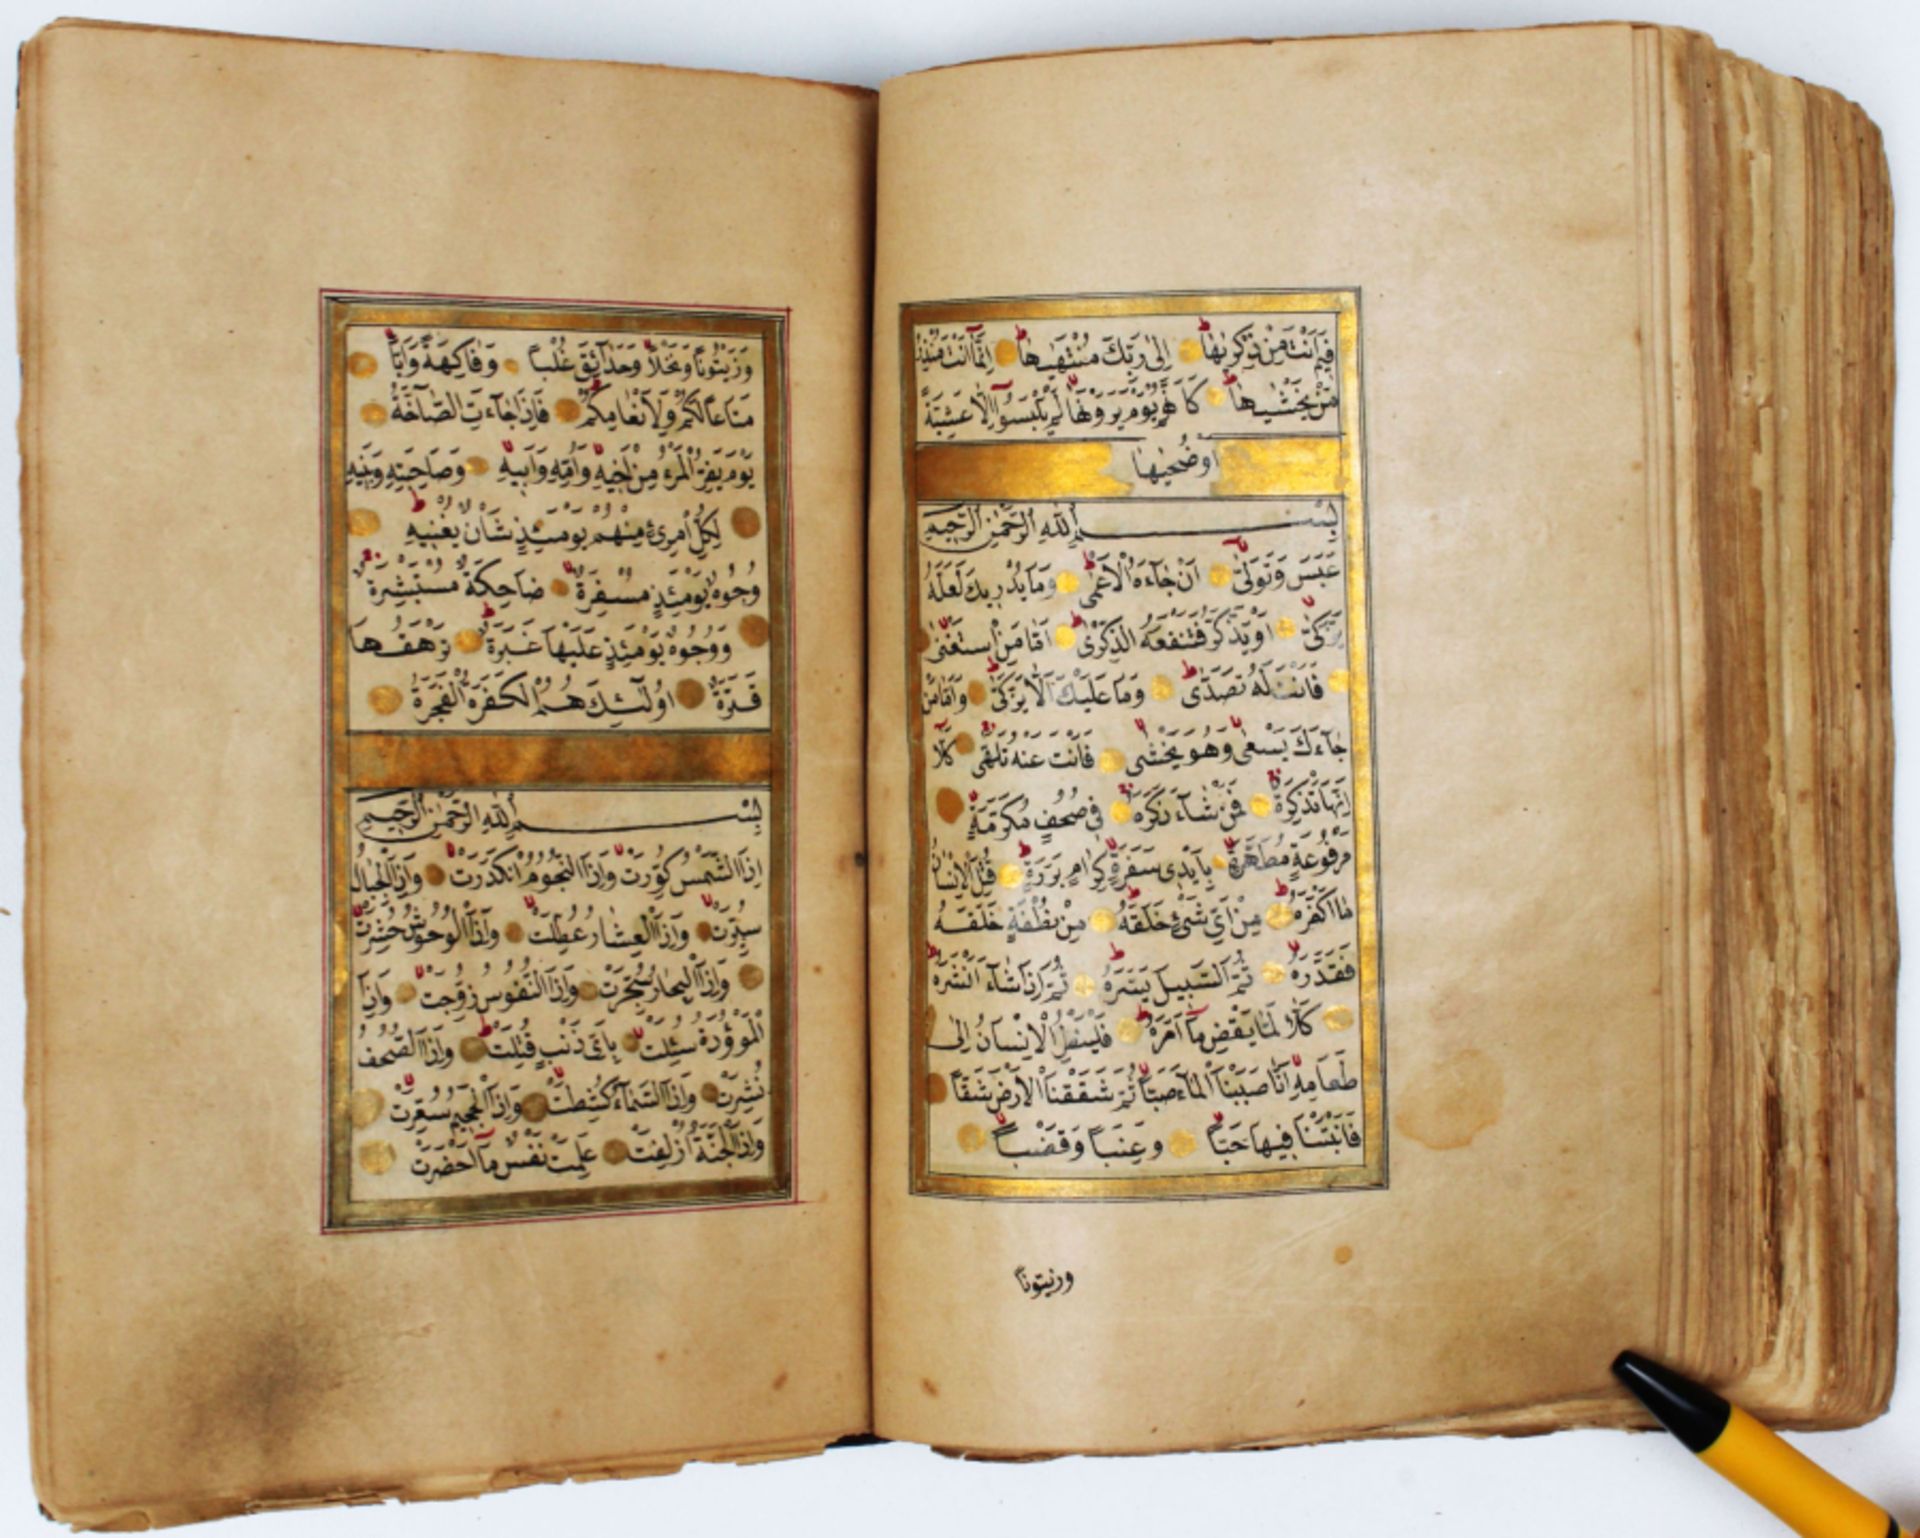 فِيمَ اَنْتَ مِنْ ذِكْرٰيهَا اِلٰى رَبِّكَ مُنْتَهٰيهَا اِنَّمَا اَنْتَ مُنْذِرُ
مَنْ يَخْشٰيهَا كَاَنَّهُمْ يَوْمَ يَرَوْنَهَا لَمْ يَلْبَثُوا اِلَّا عَشِيَّةً
اَوْ ضُحٰيهَا
بِسْمِ اللّٰهِ الرَّحْمٰنِ الرَّحِيمِ
عَبَسَ وَتَوَلّٰى اَنْ جَاءَهُ الْاَعْمٰى وَمَا يُدْرِيكَ لَعَلَّهُ
يَزَّكّٰى اَوْ يَذَّكَّرُ فَتَنْفَعَهُ الذِّكْرٰى اَمَّا مَنِ اسْتَغْنٰى
فَاَنْتَ لَهُ تَصَدّٰى وَمَا عَلَيْكَ اَلَّا يَزَّكّٰى وَاَمَّا مَنْ
جَاءَكَ يَسْعٰى وَهُوَ يَخْشٰى فَاَنْتَ عَنْهُ تَلَهّٰى كَلَّا
اِنَّهَا تَذْكِرَةٌ فَمَنْ شَاءَ ذَكَرَهُ فِى صُحُفٍ مُكَرَّمَةٍ
مَرْفُوعَةٍ مُطَهَّرَةٍ بِاَيْدِى سَفَرَةٍ كِرَامٍ بَرَرَةٍ قُتِلَ الْاِنْسَانُ
مَا اَكْفَرَهُ مِنْ اَىِّ شَىْءٍ خَلَقَهُ مِنْ نُطْفَةٍ خَلَقَهُ
فَقَدَّرَهُ ثُمَّ السَّبِيلَ يَسَّرَهُ ثُمَّ اِذَا شَاءَ اَنْشَرَهُ
كَلَّا لَمَّا يَقْضِ مَا اَمَرَهُ فَلْيَنْظُرِ الْاِنْسَانُ اِلٰى
طَعَامِهِ اَنَّا صَبَبْنَا الْمَاءَ صَبًّا ثُمَّ شَقَقْنَا الْاَرْضَ شَقًّا
فَاَنْبَتْنَا فِيهَا حَبًّا وَعِنَبًا وَقَضْبًا
وزيتونًا
وَزَيْتُونًا وَنَخْلًا وَحَدَائِقَ غُلْبًا وَفَاكِهَةً وَاَبًّا
مَتَاعًا لَكُمْ وَلِاَنْعَامِكُمْ فَاِذَا جَاءَتِ الصَّاخَّةُ
يَوْمَ يَفِرُّ الْمَرْءُ مِنْ اَخِيهِ وَاُمِّهِ وَاَبِيهِ وَصَاحِبَتِهِ وَبَنِيهِ
لِكُلِّ امْرِئٍ مِنْهُمْ يَوْمَئِذٍ شَأْنٌ يُغْنِيهِ
وُجُوهٌ يَوْمَئِذٍ مُسْفِرَةٌ ضَاحِكَةٌ مُسْتَبْشِرَةٌ
وَوُجُوهٌ يَوْمَئِذٍ عَلَيْهَا غَبَرَةٌ تَرْهَقُهَا
قَتَرَةٌ اُولٰئِكَ هُمُ الْكَفَرَةُ الْفَجَرَةُ
بِسْمِ اللّٰهِ الرَّحْمٰنِ الرَّحِيمِ
اِذَا الشَّمْسُ كُوِّرَتْ وَاِذَا النُّجُومُ انْكَدَرَتْ وَاِذَا الْجِبَالُ
سُيِّرَتْ وَاِذَا الْعِشَارُ عُطِّلَتْ وَاِذَا الْوُحُوشُ حُشِرَتْ
وَاِذَا الْبِحَارُ سُجِّرَتْ وَاِذَا النُّفُوسُ زُوِّجَتْ وَاِذَا
الْمَوْؤُدَةُ سُئِلَتْ بِاَىِّ ذَنْبٍ قُتِلَتْ وَاِذَا الصُّحُفُ
نُشِرَتْ وَاِذَا السَّمَاءُ كُشِطَتْ وَاِذَا الْجَحِيمُ سُعِّرَتْ
وَاِذَا الْجَنَّةُ اُزْلِفَتْ عَلِمَتْ نَفْسٌ مَا اَحْضَرَتْ